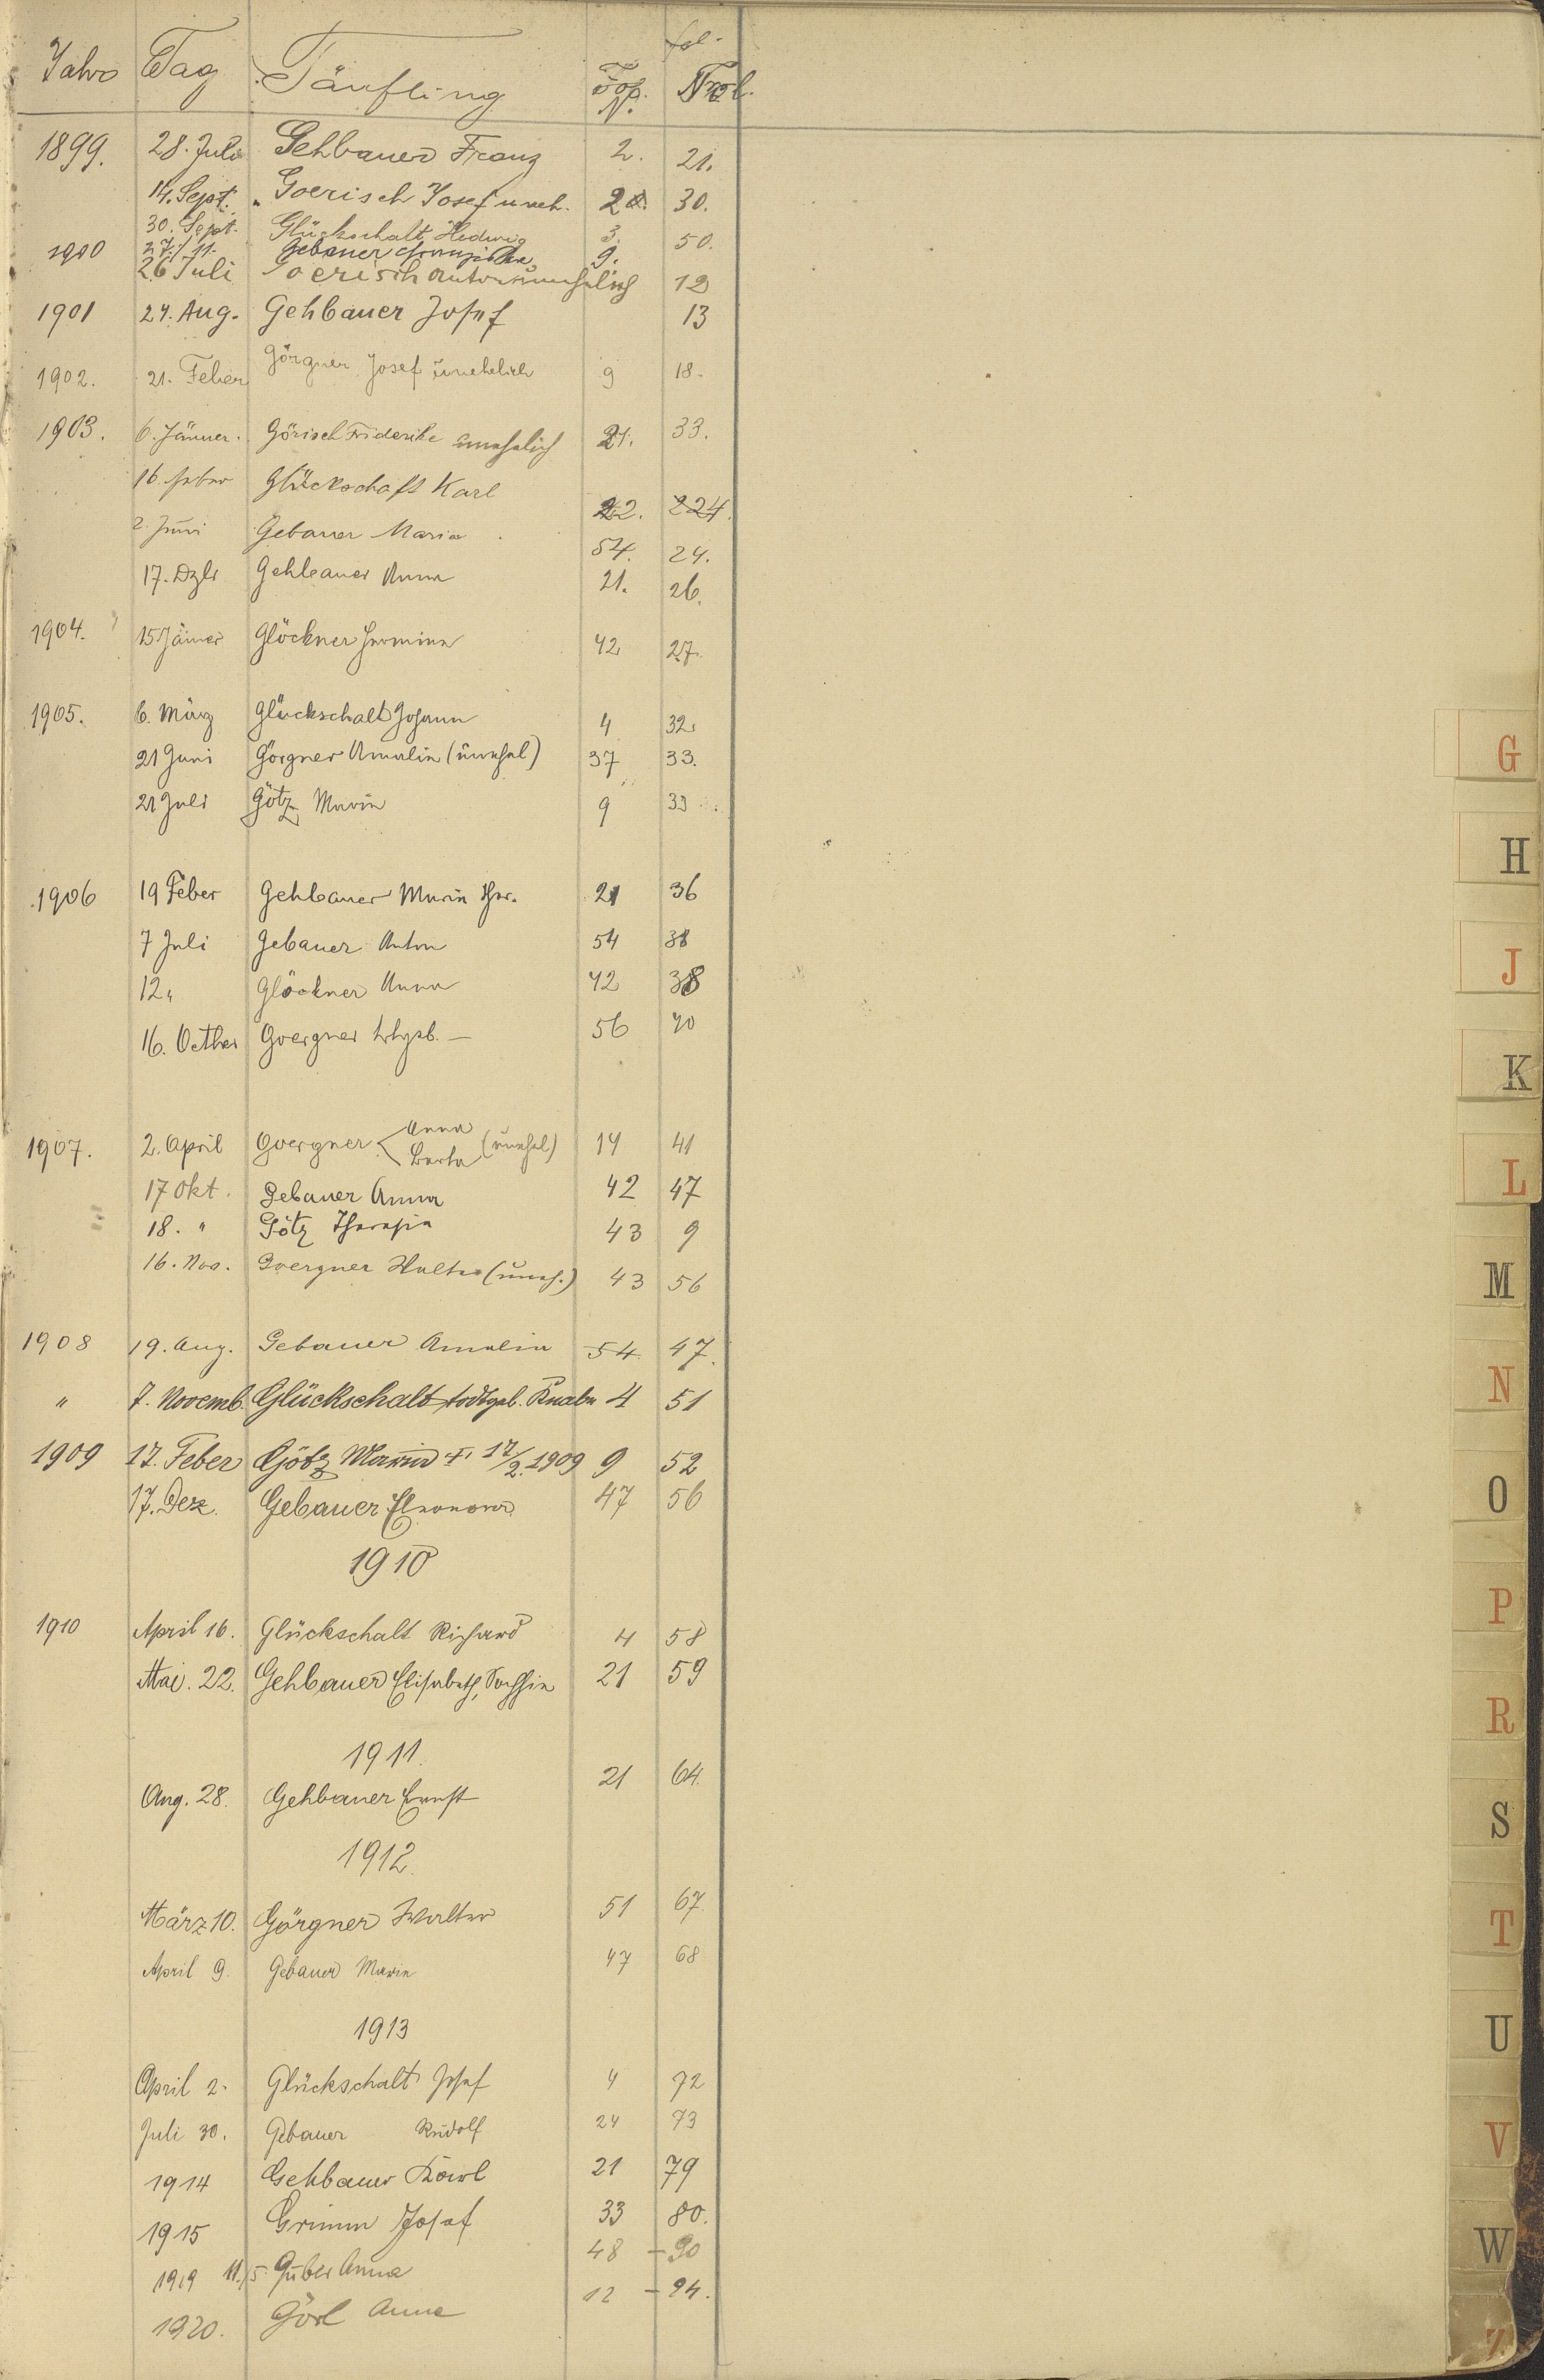 Jahr Tag Täufling Top. N. fol.
1899. 28. Juli Gehbauer Franz 2. 21.
14. Sept. Goerisch Josef uneh. 30.
30. Sept. Glückschalt Hedwig 3. 50.
1900 27./11. Gebauer Franziska 9.
26 Juli Goerisch Anton unehelich 12
1901 24. Aug. Gehbauer Josef 13
1902. 21. Feber Görgner Josef unehelich 9 18.
1903. 6. Jänner. Görisch Friderike unehelich 21. 33.
16. Feber Glückschaft Karl 22. 224.
2. Juni Gebauer Maria 54. 24.
17. Dzbr Gehbauer Anna 21. 26.
1904. 15 Jäner Glöckner Hermine 42 27.
1905. 6. März Glückschalt Johann 4 32.
21 Juni Görgner Amalia (unehel) 37 33.
21 Juli Götz Maria 9 33
1906 19 Feber Gehbauer Maria Ther. 21 36
7 Juli Gebauer Anton 54 38
12 " Glöckner Anna 42 38
16. Octber Goergner 56 40
1907. 2. April Goergner Anna Berta (unehel) 14 41
17 Okt. Gebauer Anna 42 47
18. " Götz Theresia 43 9
16. Nov. Goergner Walter (uneh.) 43 56
1908 19. Aug. Gebauer Amalia 54 47.
" 7. Novemb. Glückschalt todtgeb. Knabe 4 51
1909 17. Feber Götz Maria † 17/2. 1909 9 52
17. Dez. Gebauer Eleonora 47 56
1910
1910 April 16. Glückschalt Richard 4 58
Mai. 22. Gehbauer Elisabeth, Sophie 21 59
1911.
Aug. 28. Gehbauer Ernst 21 64.
1912.
März 10. Görgner Walter 51 67.
April 9. Gebauer Marie 47 68
1913
April 2. Glückschalt Josef 4 72
Juli 30. Gebauer Rudolf 24 73
1914 Gehbauer Karl 21 79
1915 Grimm Josef 33 80.
1919 11./5. Guber Anna 48 – 90
1920. Görl Anna 12 – 94.
G
H
J
K
L
M
N
O
P
R
S
T
U
V
W
Z